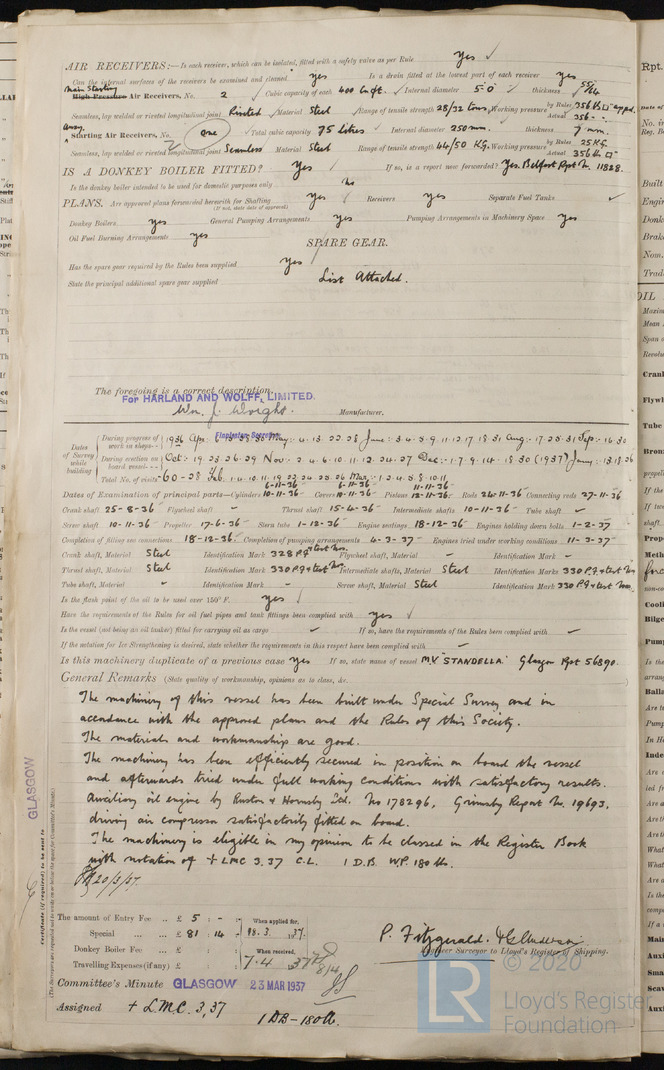 AIR RECEIVERS:— Is each receiver, which can be isolated, fitted with a safety valve as per Rule yes ✓
Can the internal surfaces of the receivers be examined and cleaned yes Is a drain fitted at the lowest part of each receiver yes
Main Starting High Pressure Air Receivers, No. 2 Cubic capacity of each 400 Cu ft. Internal diameter 5'0" thickness
Seamless, lap welded or riveted longitudinal joint Riveted Material Steel Range of tensile strength 28/32 tons Working pressure by Rules 356 lbs □" appd.
Actual 356
Auxy. Starting Air Receivers, No. one Total cubic capacity 75 litres Internal diameter 250 mm. thickness 7 mm.
Seamless, lap welded or riveted longitudinal joint Seamless Material Steel Range of tensile strength 44/50 KG. Working pressure by Rules 25 KG.
Actual 356 lbs □"
IS A DONKEY BOILER FITTED? yes If so, is a report now forwarded? Yes. Belfast Rpt No. 11828.
Is the donkey boiler intended to be used for domestic purposes only no
PLANS. Are approved plans forwarded herewith for Shafting yes Receivers yes Separate Fuel Tanks ✓
(If not, state date of approval)
Donkey Boilers yes General Pumping Arrangements yes Pumping Arrangements in Machinery Space yes
Oil Fuel Burning Arrangements yes
SPARE GEAR.
Has the spare gear required by the Rules been supplied yes
State the principal additional spare gear supplied List Attached.
The foregoing is a correct description,
For HARLAND AND WOLFF, LIMITED.
Wm. J. Wright. Manufacturer.
Dates of Survey while building
During progress of work in shops - - 1936 Apr: May: 4. 13. 22. 28 June: 3. 4. 5. 9. 11. 12. 17. 18. 31 Aug: 17. 25. 31 Sep: 16. 30
During erection on board vessel - - - Oct: 19. 23. 26. 29 Nov: 2. 4. 6. 10. 11. 12. 24. 27 Dec: 1. 7. 9. 14. 18. 30 (1937) Jany: 13. 18. 26
Total No. of visits 60 Feb. Mar:
Dates of Examination of principal parts—Cylinders 10-11-36 Covers 10-11-36 Pistons 12-11-36 Rods 26-11-36 Connecting rods 27-11-36
Crank shaft 25-8-36 Flywheel shaft - Thrust shaft 15-4-36 Intermediate shafts 10-11-36 Tube shaft -
Screw shaft 10-11-36 Propeller 17-6-36 Stern tube 1-12-36 Engine seatings 18-12-36 Engines holding down bolts 1-2-37
Completion of fitting sea connections 18-12-36 Completion of pumping arrangements 4-3-37 Engines tried under working conditions 11-3-37
Crank shaft, Material Steel Identification Mark 328 P.F. & test Nos. Flywheel shaft, Material - Identification Mark -
Thrust shaft, Material Steel Identification Mark 330 P.F. & test Nos. Intermediate shafts, Material Steel Identification Marks 330 P.F. & test Nos
Tube shaft, Material - Identification Mark - Screw shaft, Material Steel Identification Mark 330 P.F. & test Nos.
Is the flash point of the oil to be used over 150° F. yes
Have the requirements of the Rules for oil fuel pipes and tank fittings been complied with yes ✓
Is the vessel (not being an oil tanker) fitted for carrying oil as cargo - If so, have the requirements of the Rules been complied with -
If the notation for Ice Strengthening is desired, state whether the requirements in this respect have been complied with -
Is this machinery duplicate of a previous case yes If so, state name of vessel M.V "STANDELLA" Glasgow Rpt 56890.
General Remarks (State quality of workmanship, opinions as to class, &c.
The machinery of this vessel has been built under Special Survey and in
accordance with the approved plans and the Rules of this Society.
The materials and workmanship are good.
The machinery has been efficiently secured in position on board the vessel
and afterwards tried under full working conditions with satisfactory results.
Auxiliary oil engine by Ruston & Hornsby Ltd. No 178296, Grimsby Report No. 19693.
driving air compressor satisfactorily fitted on board.
The machinery is eligible in my opinion to be classed in the Register Book
with notation of + LMC 3.37 C.L. 1 D.B. W.P. 180 lbs.
20/3/37.
GLASGOW
Certificate (if required) to be sent to
(The Surveyors are requested not to write on or below the space for Committee's Minute.)
The amount of Entry Fee .. £ 5 : - : When applied for,
Special ... £ 81 : 14 : 3. 1937.
Donkey Boiler Fee ... £ : : When received,
Travelling Expenses (if any) £ : : 7.4 37
P. Fitzgerald.
Engineer Surveyor to Lloyd's Register of Shipping.
Committee's Minute GLASGOW 23 MAR 1937
Assigned + L.M.C. 3,37
1 DB - 180 lb.
LR
© 2020
Lloyd's Register
Foundation